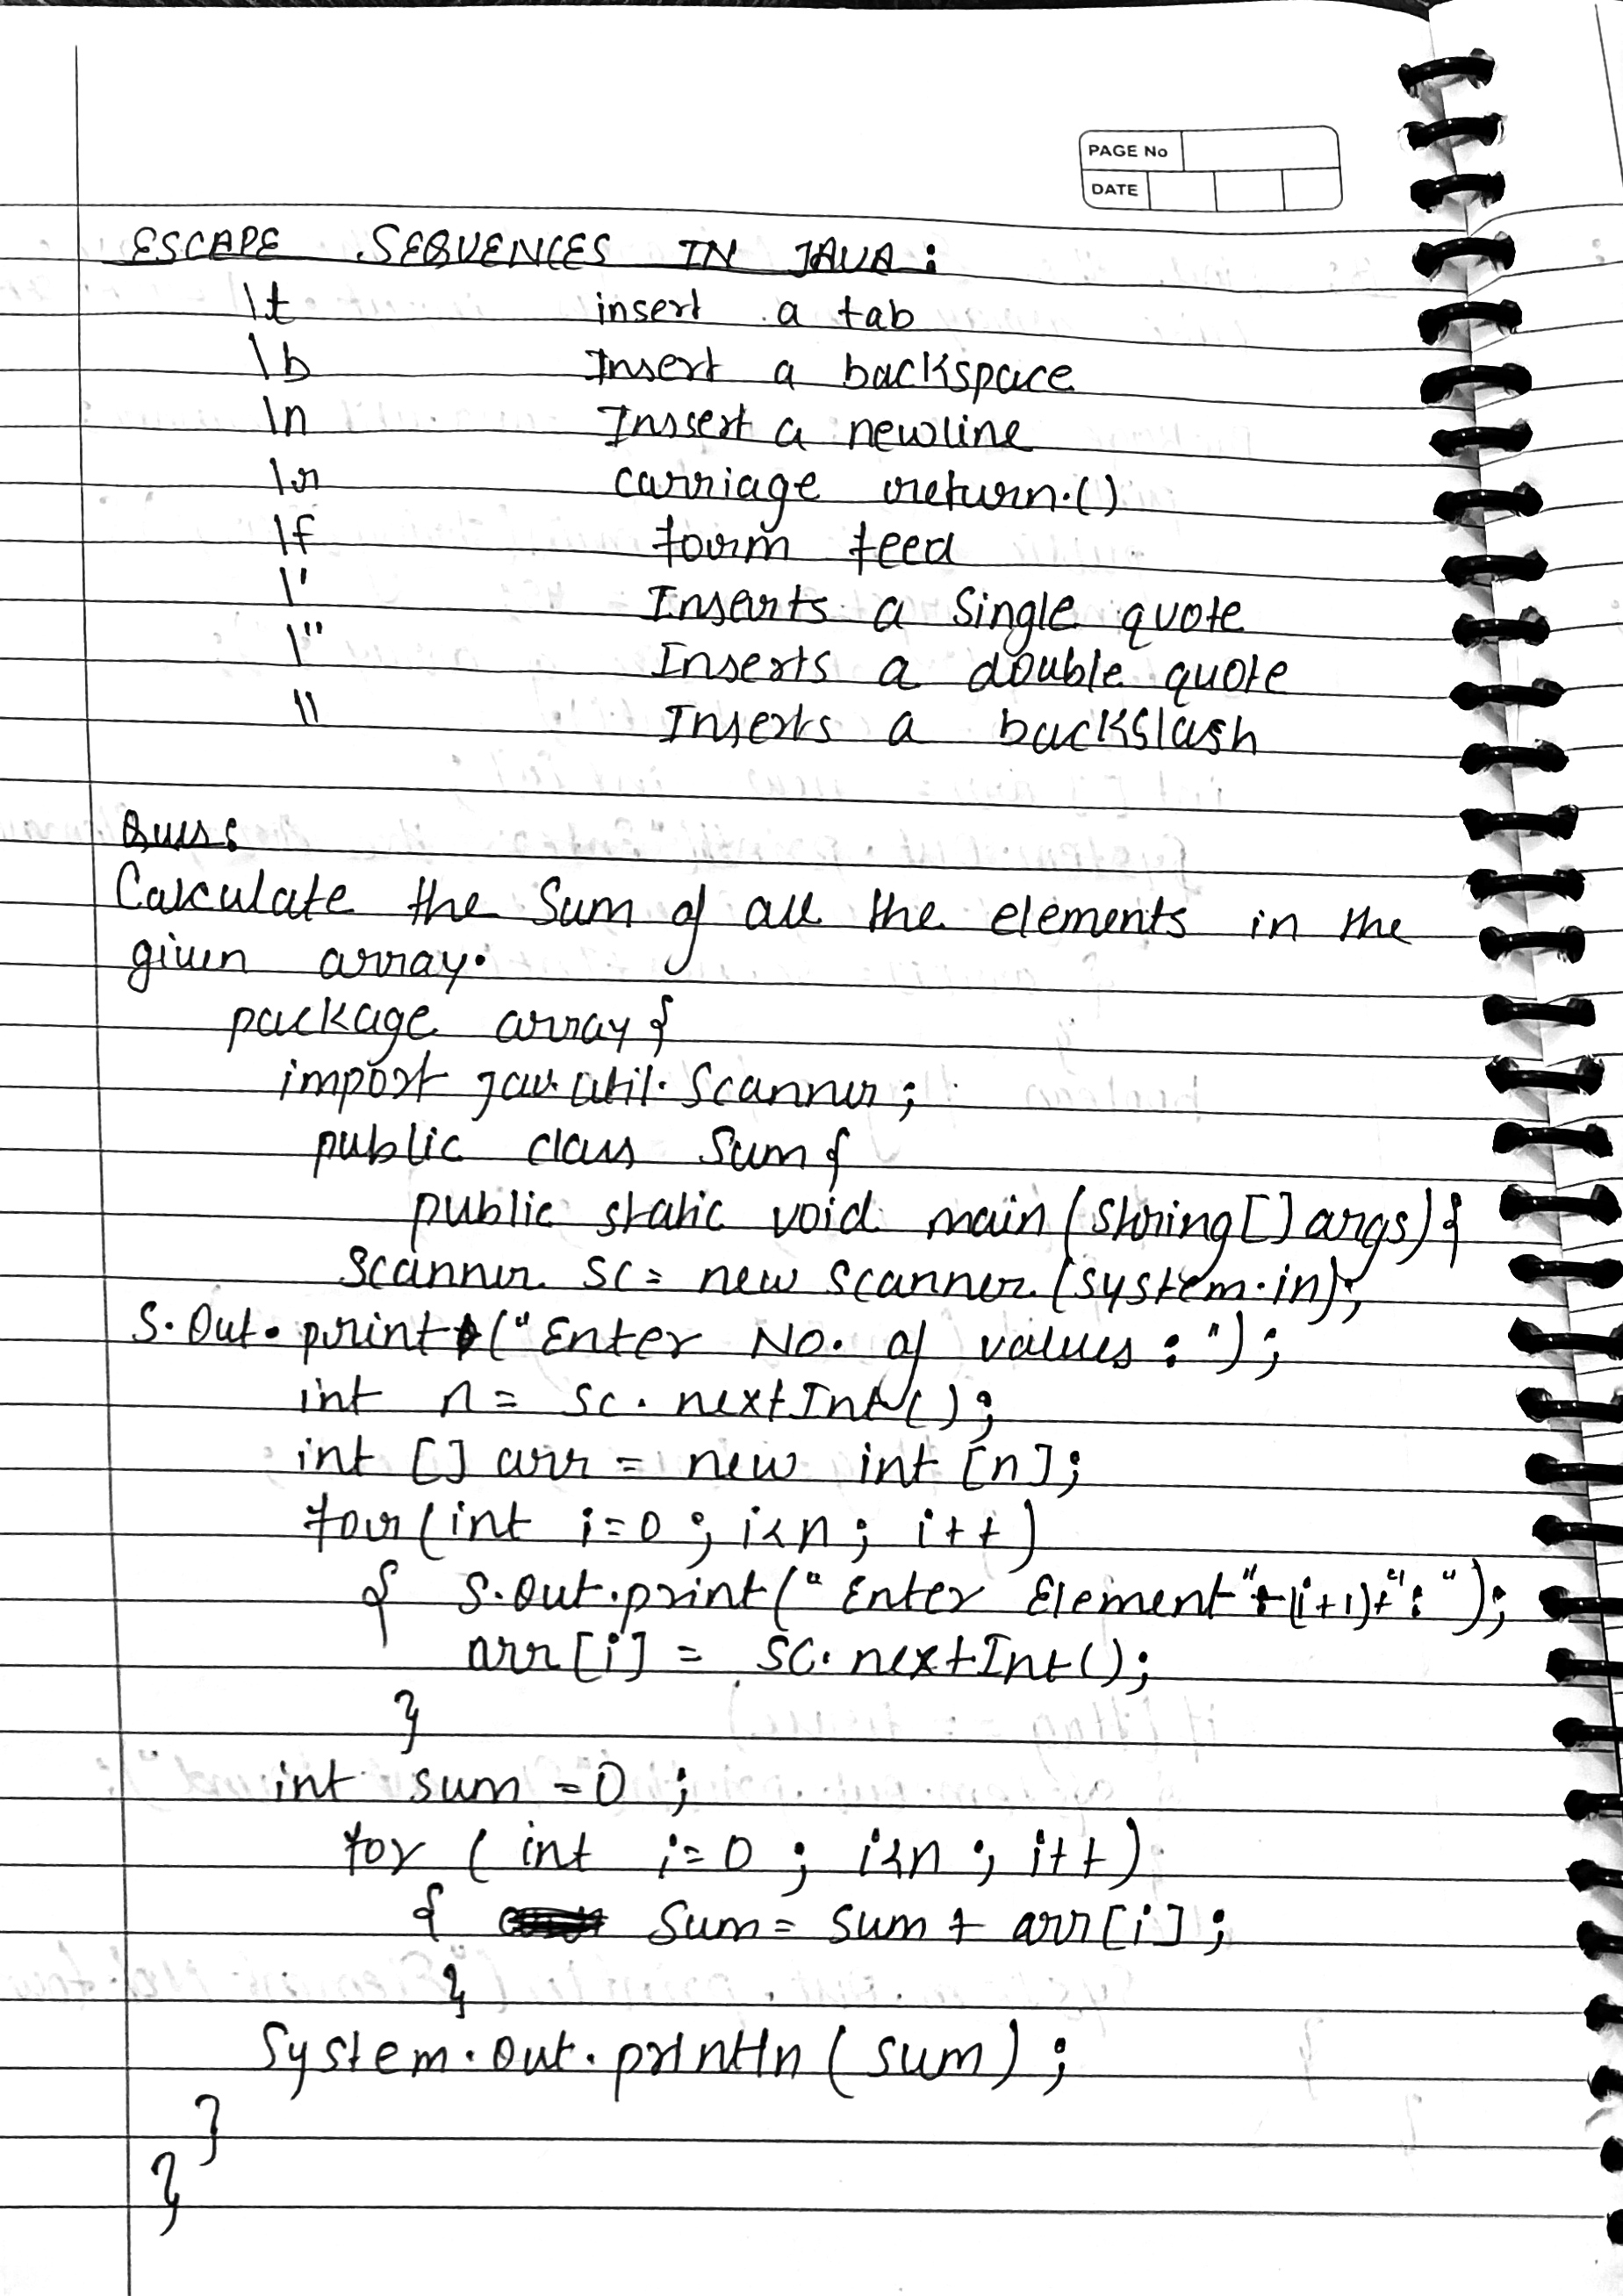 PAGE No
DATE
ESCAPE SEQUENCES IN JAVA :
\t insert a tab
\b Insert a backspace
\n Inssert a newline
\r carriage return.()
\f form feed
\' Inserts a Single quote
\" Inserts a double quote
\\ Inserts a backslash
Ques:
Calculate the Sum of all the elements in the
given array.
package array{
import jav.util.Scanner;
public class Sum{
public static void main(String[] args){
Scanner sc= new Scanner(system.in);
S.Out.print("Enter No. of values : ");
int n = sc.nextInt();
int [] arr = new int [n];
for(int i=0 ; i<n ; i++)
{ S.out.print("Enter Element"+(i+1)+": ");
arr[i] = sc.nextInt();
}
int sum =0 ;
for ( int i=0 ; i<n ; i++)
{ Sum= sum + arr[i];
}
System.out.println(sum);
}
}